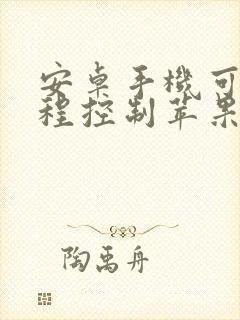 安卓手機可
程控制苹果
陶禹舟